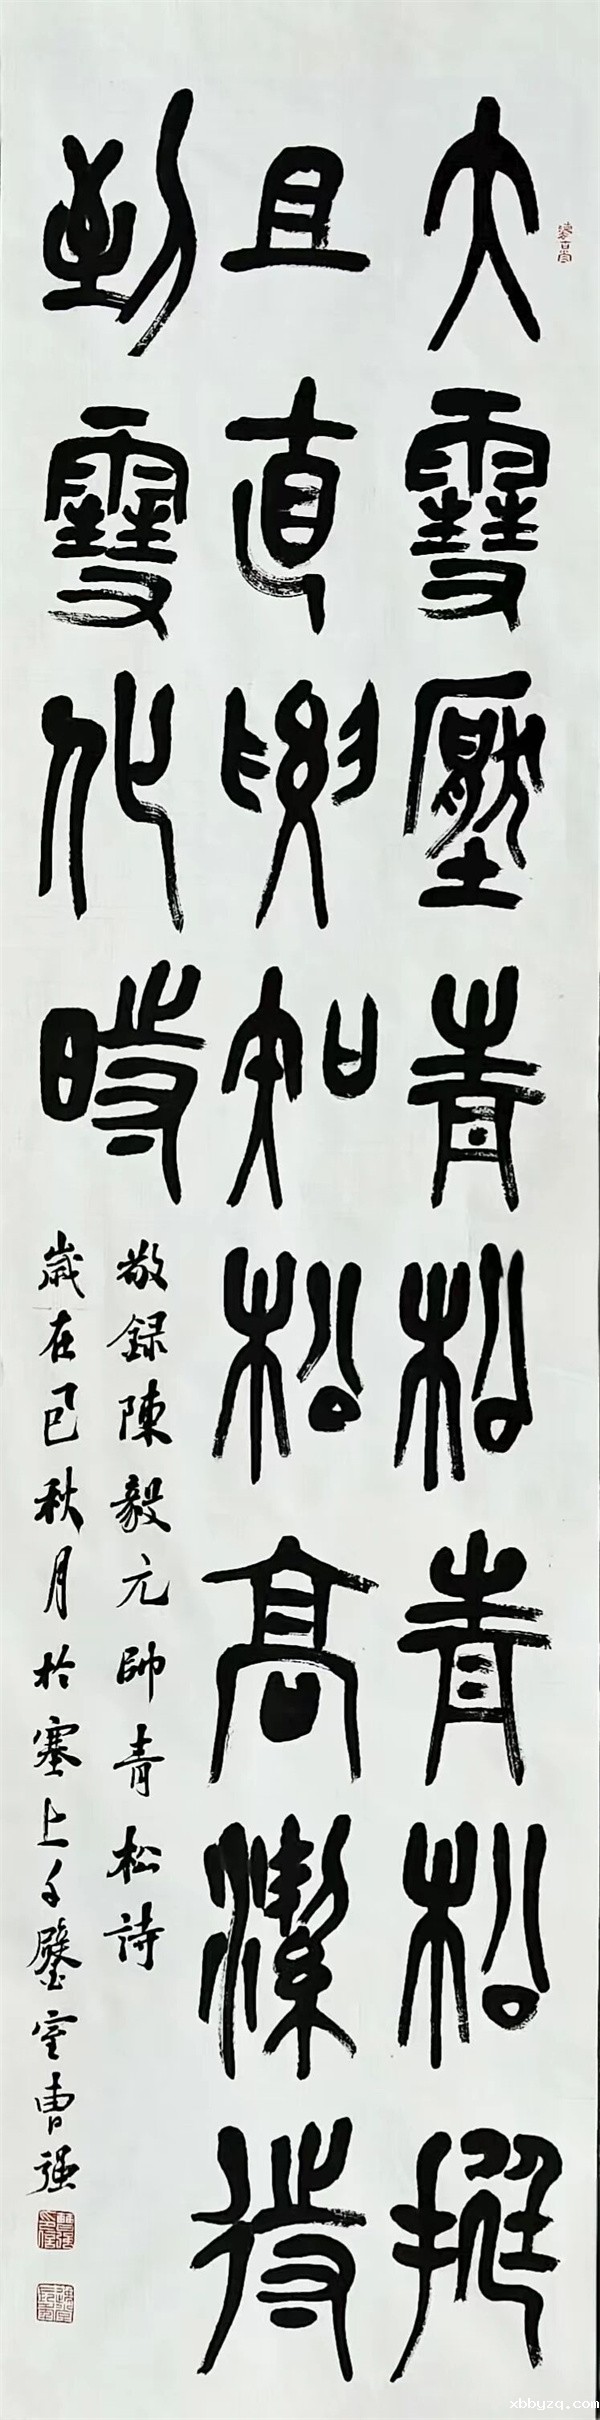 大雪壓青松青松挺
且直要知松高潔待
到雪化時
敬録陳毅元帥青松詩
歲在乙巳秋月於塞上千璧室曹强
xbbyzq.com